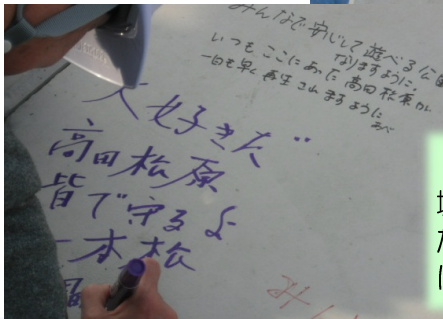 みんなで安心して遊べる公園
なりますように。
いつもここにあった高田松原が
一日も早く再生されますように
大好きだ
高田松原
皆で守るよ
一本松
み